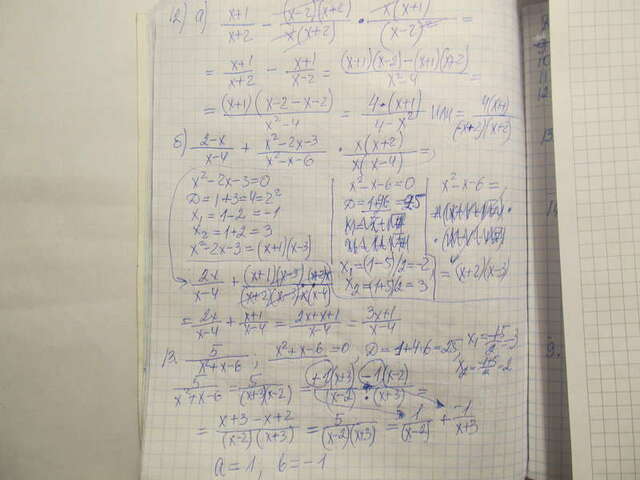 12) а) (x+1)/(x+2) − (x−2)(x+2)/(x(x+2)) · x(x+1)/(x−2)² =
= (x+1)/(x+2) − (x+1)/(x−2) = ((x+1)(x−2)−(x+1)(x+2))/(x²−4) =
= (x+1)(x−2−x−2)/(x²−4) = 4·(x+1)/(4−x²) или =
б) (2−x)/(x−4) + (x²−2x−3)/(x²−x−6) · x(x+2)/(x(x−4)) =
x²−2x−3=0
D=1+3=4=2²
x₁=1−2=−1
x₂=1+2=3
x²−2x−3=(x+1)(x−3)
x²−x−6=0
x₁=(1−5)/2=−2
x₂=(1+5)/2=3
x²−x−6=
=(x+2)(x−3)
2x/(x−4) +
= 2x/(x−4) + (x+1)/(x−4) = (2x+x+1)/(x−4) = (3x+1)/(x−4)
5/(x²+x−6), x²+x−6=0, D=1+4·6=25,
5/(x²+x−6) = 5/((x+3)(x−2)) = (+1(x+3) −1(x−2))/((x−2)·(x+3)) =
= (x+3−x+2)/((x−2)(x+3)) = 5/((x−2)(x+3)) = 1/(x−2) + −1/(x+3)
a=1, b=−1